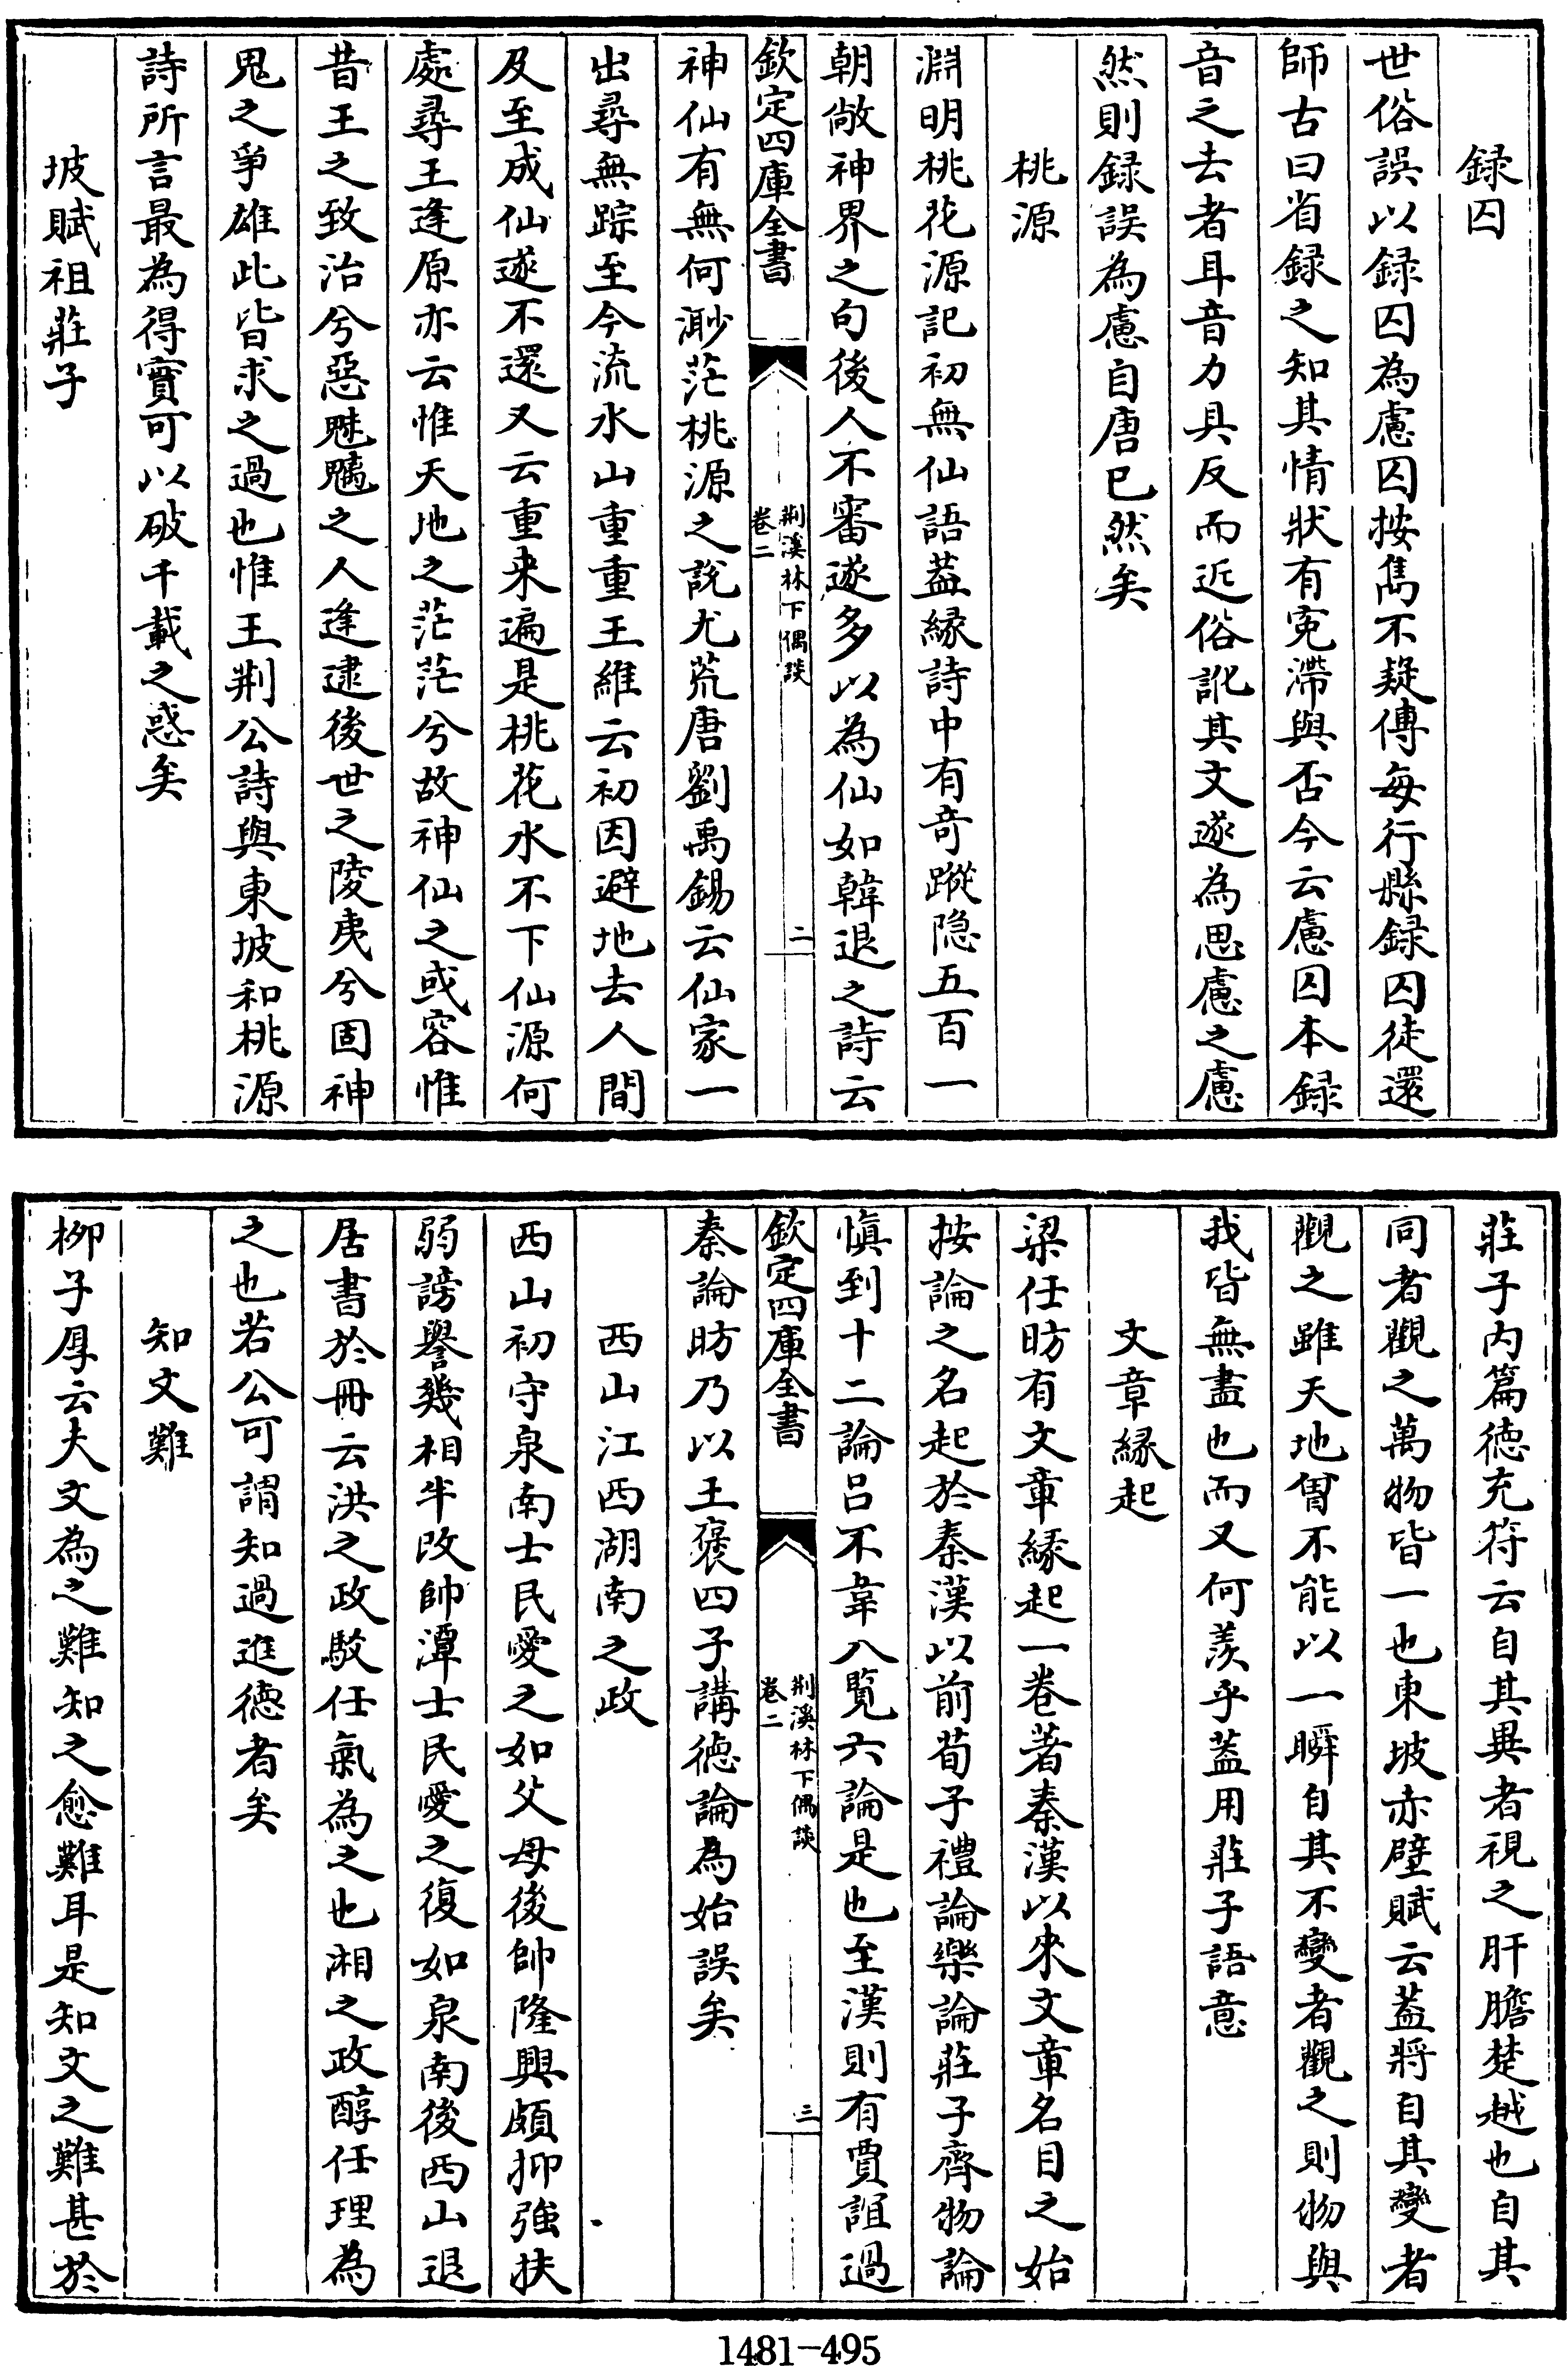 録囚
世俗誤以録囚為慮囚按雋不疑傳每行縣録囚徒還
師古曰省録之知其情狀有寃滯與否今云慮囚本録
音之去者耳音力具反而近俗訛其文遂為思慮之慮
然則録誤為慮自唐已然矣
桃源
淵明桃花源記初無仙語葢緣詩中有奇蹤隐五百一
朝敞神界之句後人不審遂多以為仙如韓退之詩云
欽定四庫全書
荆溪林下偶談
卷二
二
神仙有無何渺茫桃源之說尤荒唐劉禹錫云仙家一
出尋無踪至今流水山重重王維云初因避地去人間
及至成仙遂不還又云重来遍是桃花水不下仙源何
處尋王逢原亦云惟天地之茫茫兮故神仙之或容惟
昔王之致治兮惡魅魑之人逢逮後世之陵夷兮固神
鬼之爭雄此皆求之過也惟王荆公詩與東坡和桃源
詩所言最為得實可以破千載之惑矣
坡賦祖莊子
莊子内篇徳充符云自其異者視之肝膽楚越也自其
同者觀之萬物皆一也東坡赤壁賦云葢將自其變者
觀之雖天地曾不能以一瞬自其不變者觀之則物與
我皆無盡也而又何羨乎葢用莊子語意
文章緣起
梁任昉有文章緣起一卷著秦漢以來文章名目之始
按論之名起於秦漢以前荀子禮論樂論莊子齊物論
慎到十二論吕不韋八覽六論是也至漢則有賈誼過
欽定四庫全書
荆溪林下偶談
卷二
三
秦論昉乃以王褒四子講徳論為始誤矣
西山江西湖南之政
西山初守泉南士民愛之如父母後帥隆興頗抑強扶
弱謗譽幾相半改帥潭士民愛之復如泉南後西山退
居書於冊云洪之政駁任氣為之也湘之政醇任理為
之也若公可謂知過進徳者矣
知文難
柳子厚云夫文為之難知之愈難耳是知文之難甚於
1481-495